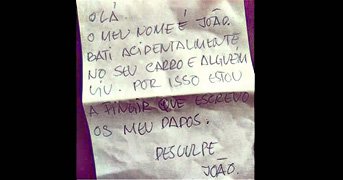 OLÁ.
O MEU NOME É JOÃO.
BATI ACIDENTALMENTE
NO SEU CARRO E ALGUÉM
VIU. POR ISSO ESTOU
A FINGIR QUE ESCREVO
OS MEU DADOS.
DESCULPE
JOÃO.